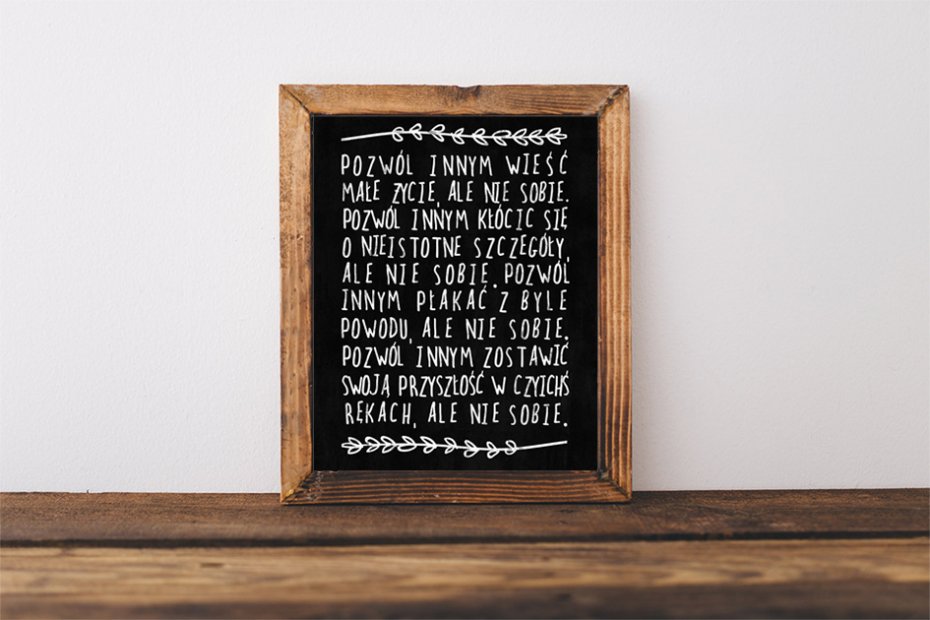 POZWÓL INNYM WIEŚĆ
MAŁE ŻYCIE, ALE NIE SOBIE.
POZWÓL INNYM KŁÓCIC SIĘ
O NIEISTOTNE SZCZEGÓŁY,
ALE NIE SOBIE. POZWÓL
INNYM PŁAKAĆ Z BYLE
POWODU, ALE NIE SOBIE.
POZWÓL INNYM ZOSTAWIĆ
SWOJĄ PRZYSZŁOŚĆ W CZYICHŚ
RĘKACH, ALE NIE SOBIE.